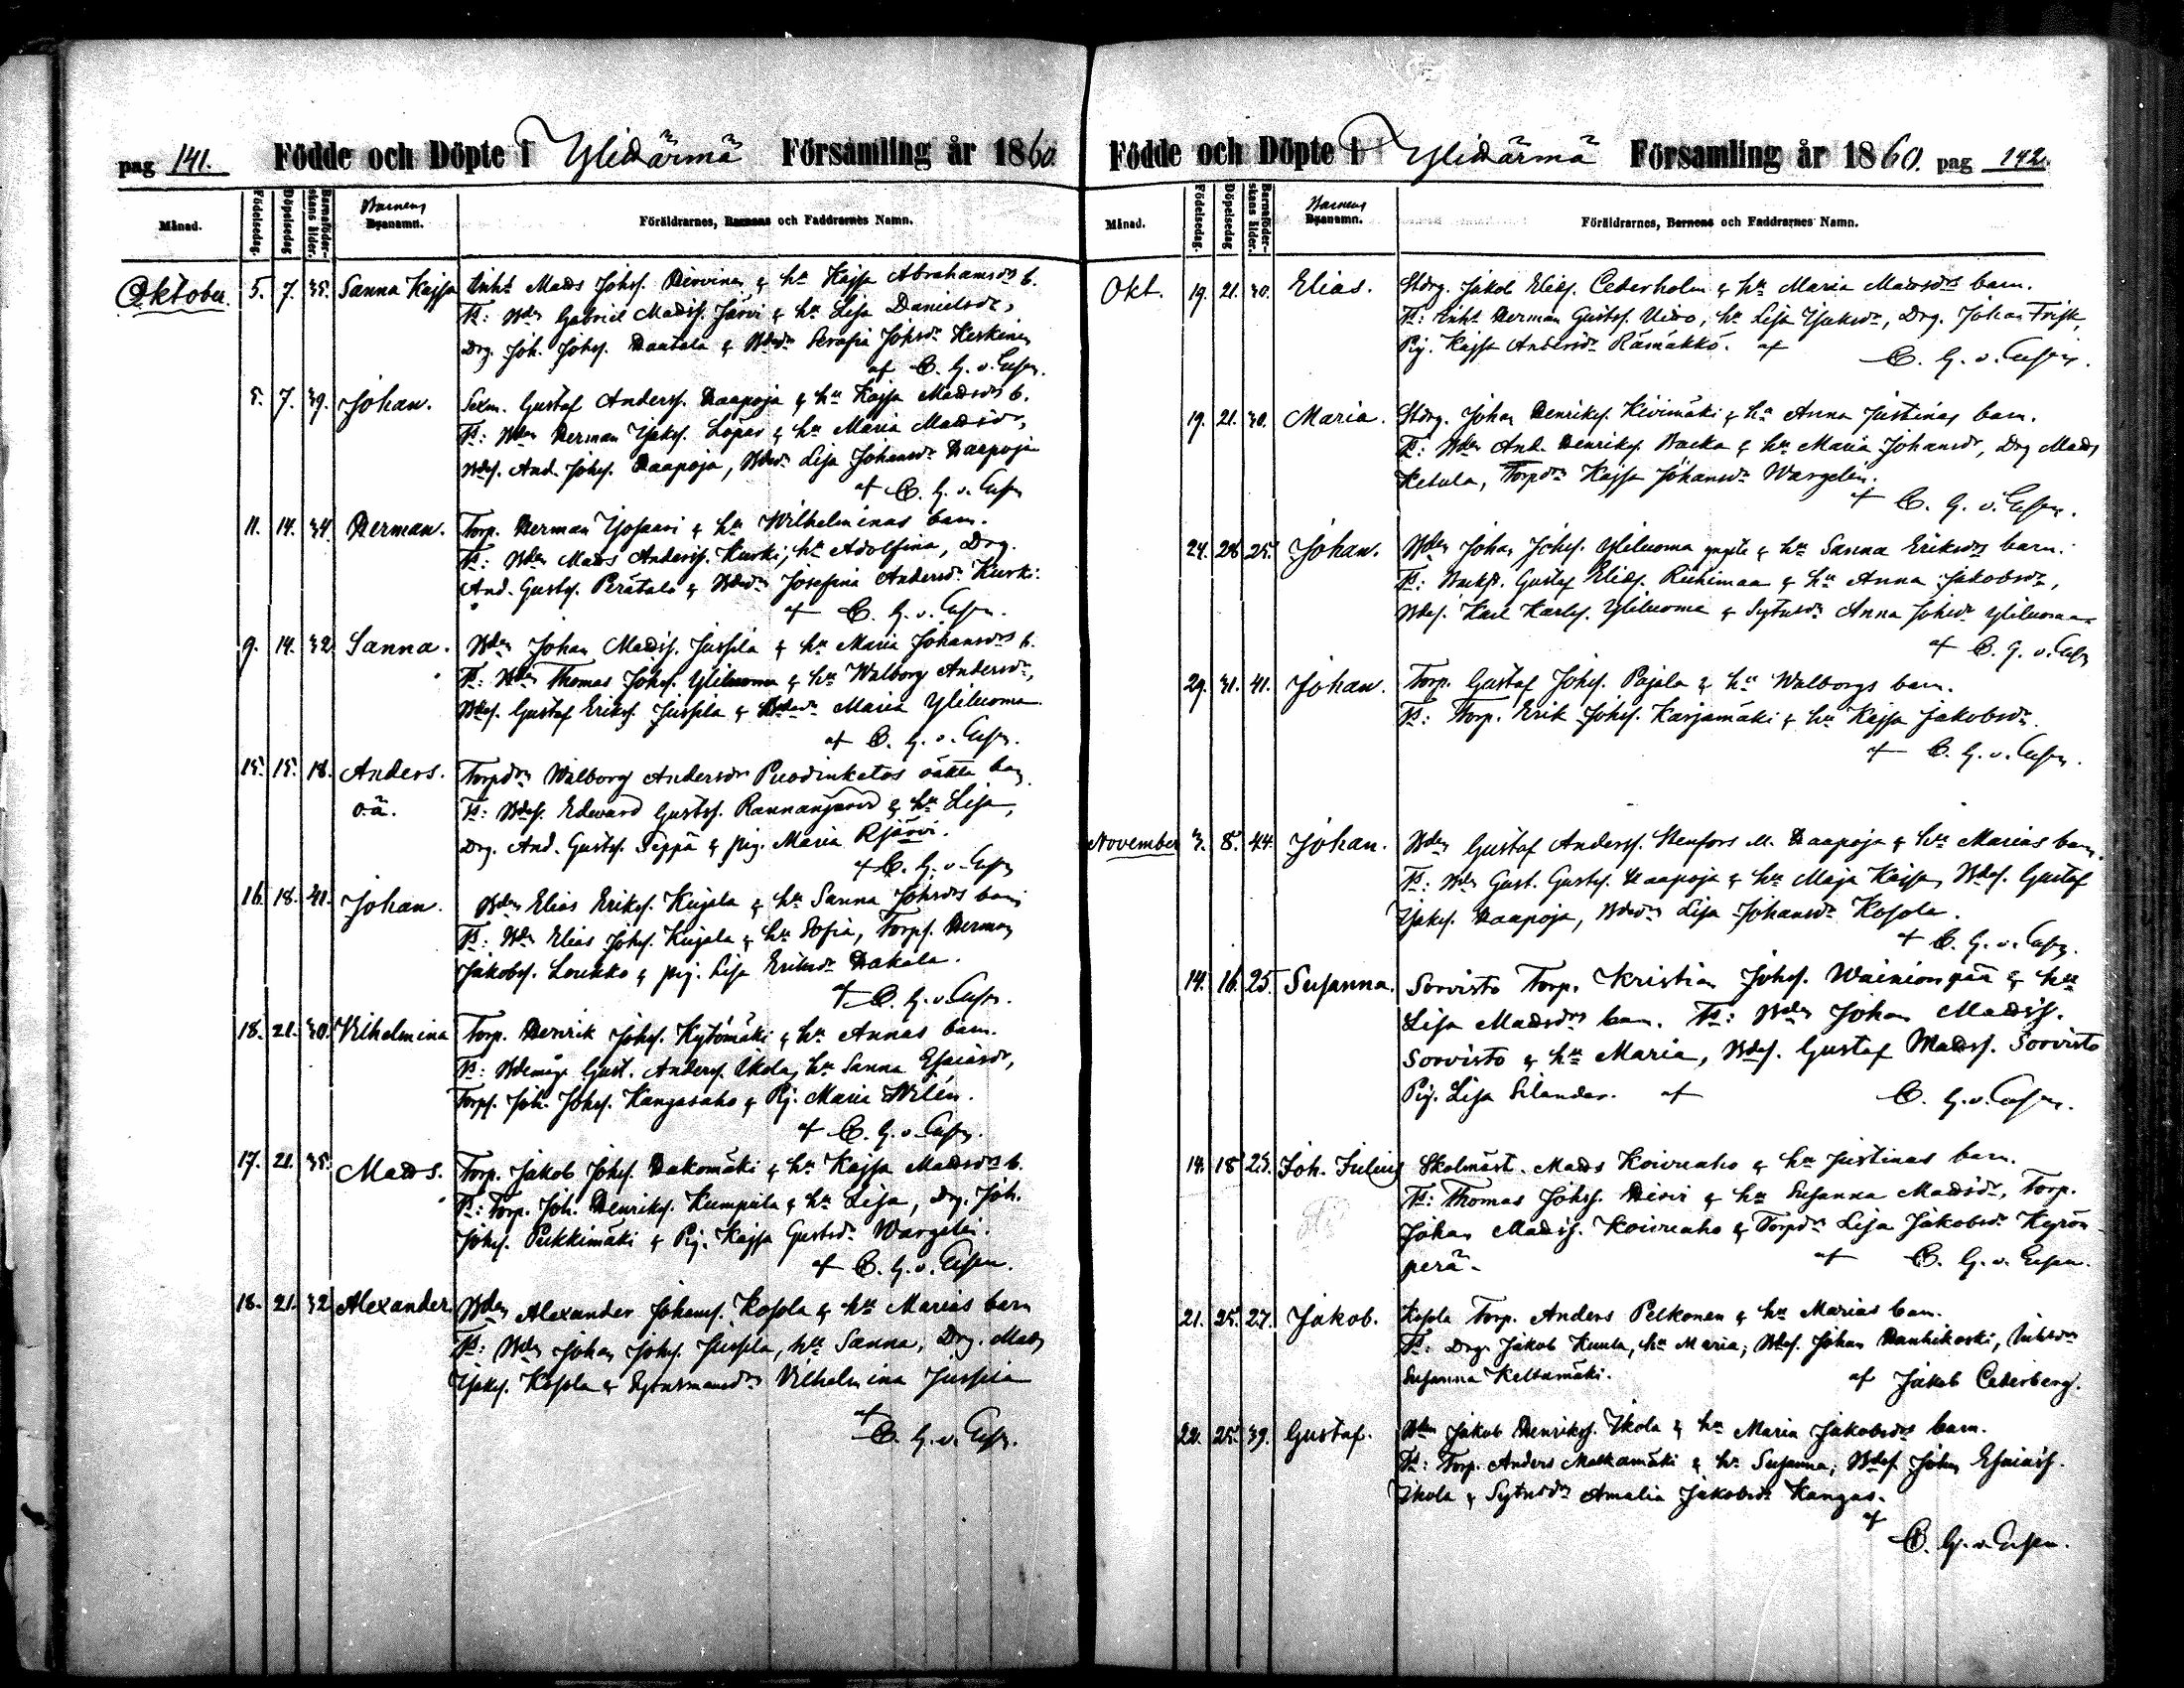 pag 141. Födde och Döpte i Ylihärmä Församling år 1860.
Månad. Födelsedag. Döpelsedag Barnaföderskans ålder. Barnens Bynamn. Föräldrarnes, Barnens och Faddrarnes Namn.
Oktober. 5. 7. 35. Sanna Kajsa Mads Johs. & hu Kajsa Abrahamsdrs b.
Gabriel Madss. Järvi & hu Lisa Danielsdr,
Drg. Joh. Johss. Hantala & Serafia Johsdr Keskinen
af C. G. v. Essen.
5. 7. 39. Johan. Gustaf Anderss. Haapoja & hu Kajsa Madsdrs b.
Herman & hu Maria Madsdr,
And. Johss. Haapoja, Lisa Johansdr Haapoja
af C. G. v. Essen
11. 14. 34 Herman. Torp. Herman & hu Wilhelminas barn.
Mads Anderss. Kurki, hu Adolfina, Drg.
And. Gustss. Perätalo & Josefina Andersdr Kurki.
af C. G. v. Essen.
9. 14. 32 Sanna. Johan Madss. Jussila & hu Maria Johansdrs b.
Thomas Johss. Yliluoma & hu Walborg Andersdr,
Gustaf Erikss. Jussila & Maria Yliluoma
af C. G. v. Essen.
15. 15. 18. Anders. Torpdrn Walborg Andersdr oäkta barn
o.ä. Edward Gustss. Rannanjärvi & hu Lisa,
Drg. And. Gustss. Seppä & pig. Maria
af C. G. v. Essen
16. 18. 41. Johan. Elias Erikss. Kujala & hu Sanna Johsdrs barn
Elias Johss. Kujala & hu Sofia, Torps. Herman
Jakobss. Loukko & pig. Lisa Eriksdr Hakala.
af C. G. v. Essen.
18. 21. 30. Vilhelmina Torp. Henrik Johss. Kytömäki & hu Annas barn.
Gust. Anderss. Ikola, hu Sanna Esaiasdr,
Torps. Joh. Johss. Kangasaho & Pig. Maria Wilén.
af C. G. v. Essen.
17. 21. 35. Mads. Torp. Jakob Johss. Hakomäki & hu Kajsa Madsdrs b.
Torp. Joh. Henrikss. Kumpula & hu Lisa, Drg. Joh.
Johss. Pukkimäki & Pig. Kajsa Gustsdr Wargelin.
af C. G. v. Essen.
18. 21. 32 Alexander. Alexander Johanss. Kosola & hu Marias barn
Johan Johss. Jussila, hu Sanna, Drg. Mats
Kosola & Vilhelmina Jussila
af
C. G. v. Essen.
Födde och Döpte i Ylihärmä Församling år 1860. pag 142.
Månad. Födelsedag. Döpelsedag Barnaföderskans ålder. Barnens Bynamn. Föräldrarnes, Barnens och Faddrarnes Namn.
Okt. 19. 21. 30. Elias. Jakob Eliss. Cederholm & hu Maria Madsdrs barn.
Herman Gustss. hu Lisa Drg. Johan Frisk,
Pig. Kajsa Andersdr Rämäkkö. af C. G. v. Essen.
19. 21. 30. Maria. Johan Henrikss. Kivimäki & hu Anna Justinas barn.
And. Henrikss. Backa & hu Maria Johansdr, Drg Mads
Ketula, Torpdr Kajsa Johansdr Wargelin.
af C. G. v. Essen.
24. 28 25. Johan. Johan Johss. Yliluoma yngste & hu Sanna Eriksdrs barn.
Gustaf Eliss. Riihimaa & hu Anna Jakobsdr,
Karl Karlss. Yliluoma & Anna Johsdr Yliluoma
af C. G. v. Essen
29. 31. 41. Johan. Torp. Gustaf Johss. Pajala & hu Walborgs barn.
Torp. Erik Johss. Karjamäki & hu Kajsa Jakobsdr.
af C. G. v. Essen.
November 3. 8. 44. Johan. Gustaf Anderss. Stenfors Haapoja & hu Marias barn.
Gust. Gustss. Haapoja & hu Maja Kajsa, Gustaf
Haapoja, Lisa Johansdr Kosola.
af C. G. v. Essen.
14. 16. 25. Susanna. Sorvisto Torp. Kristian Johss. Wainionpää & hu
Lisa Madsdrs barn. Johan Madss.
Sorvisto & hu Maria, Gustaf Madss. Sorvisto
Pig. Lisa Silander. af C. G. v. Essen.
14. 18 25. Joh. Julius Skolmäst. Mads Koivuaho & hu Justinas barn.
Thomas Johss. & hu Susanna Madsdr, Torp.
Johan Madss. Koivuaho & Torpdr Lisa Jakobsdr Kyrön
perä. af C. G. v. Essen.
21. 25. 27. Jakob. Kosola Torp. Anders Pelkonen & hu Marias barn.
Drg. Jakob Kuula, hu Maria, Johan Hanhikoski,
Susanna Keltamäki. af Jakob Cederberg.
22. 25. 39. Gustaf. Jakob Henrikss. Ikola & hu Maria Jakobsdrs barn.
Torp. Anders Matkamäki & hu Susanna, Johan Esaiass.
Ikola & Amalia Jakobsdr Kangas.
af
C. G. v. Essen.